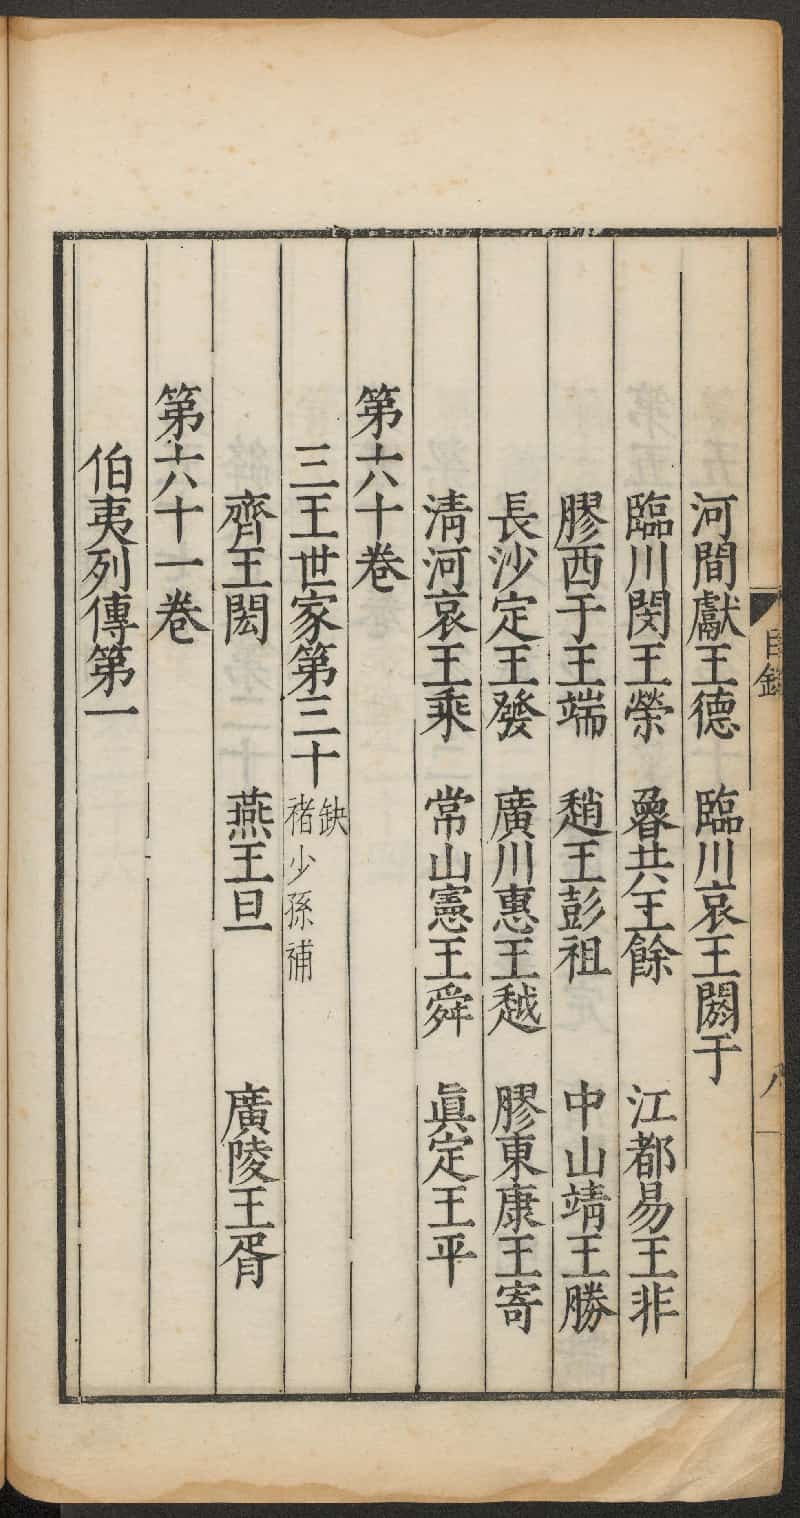 目錄
八
河間獻王德 臨川哀王閼于
臨川閔王榮 魯共王餘 江都易王非
膠西于王端 趙王彭祖 中山靖王勝
長沙定王發 廣川惠王越 膠東康王寄
清河哀王乘 常山憲王舜 眞定王平
第六十卷
三王世家第三十 缺 褚少孫補
齊王閎 燕王旦 廣陵王胥
第六十一卷
伯夷列傳第一